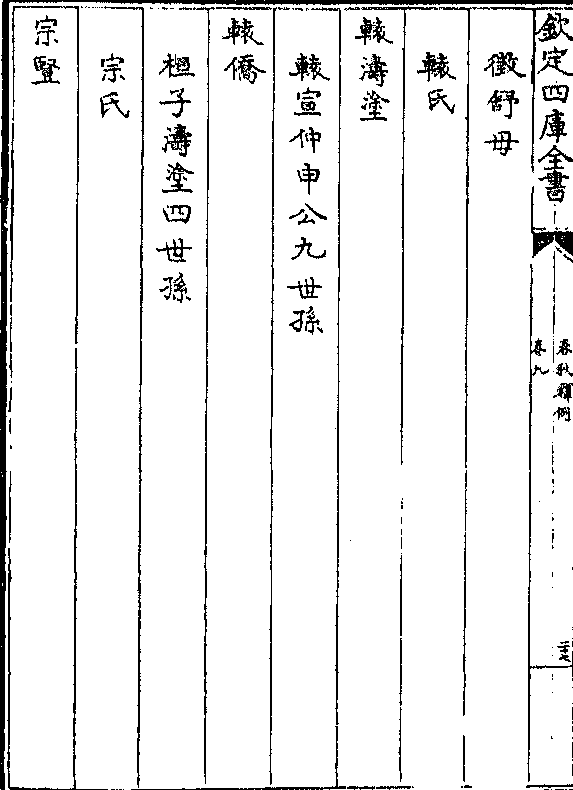 欽定四庫全書
春秋釋例
卷九
二十七
徵舒母
轅氏
轅濤塗
轅宣仲申公九世孫
轅僑
桓子濤塗四世孫
宗氏
宗豎